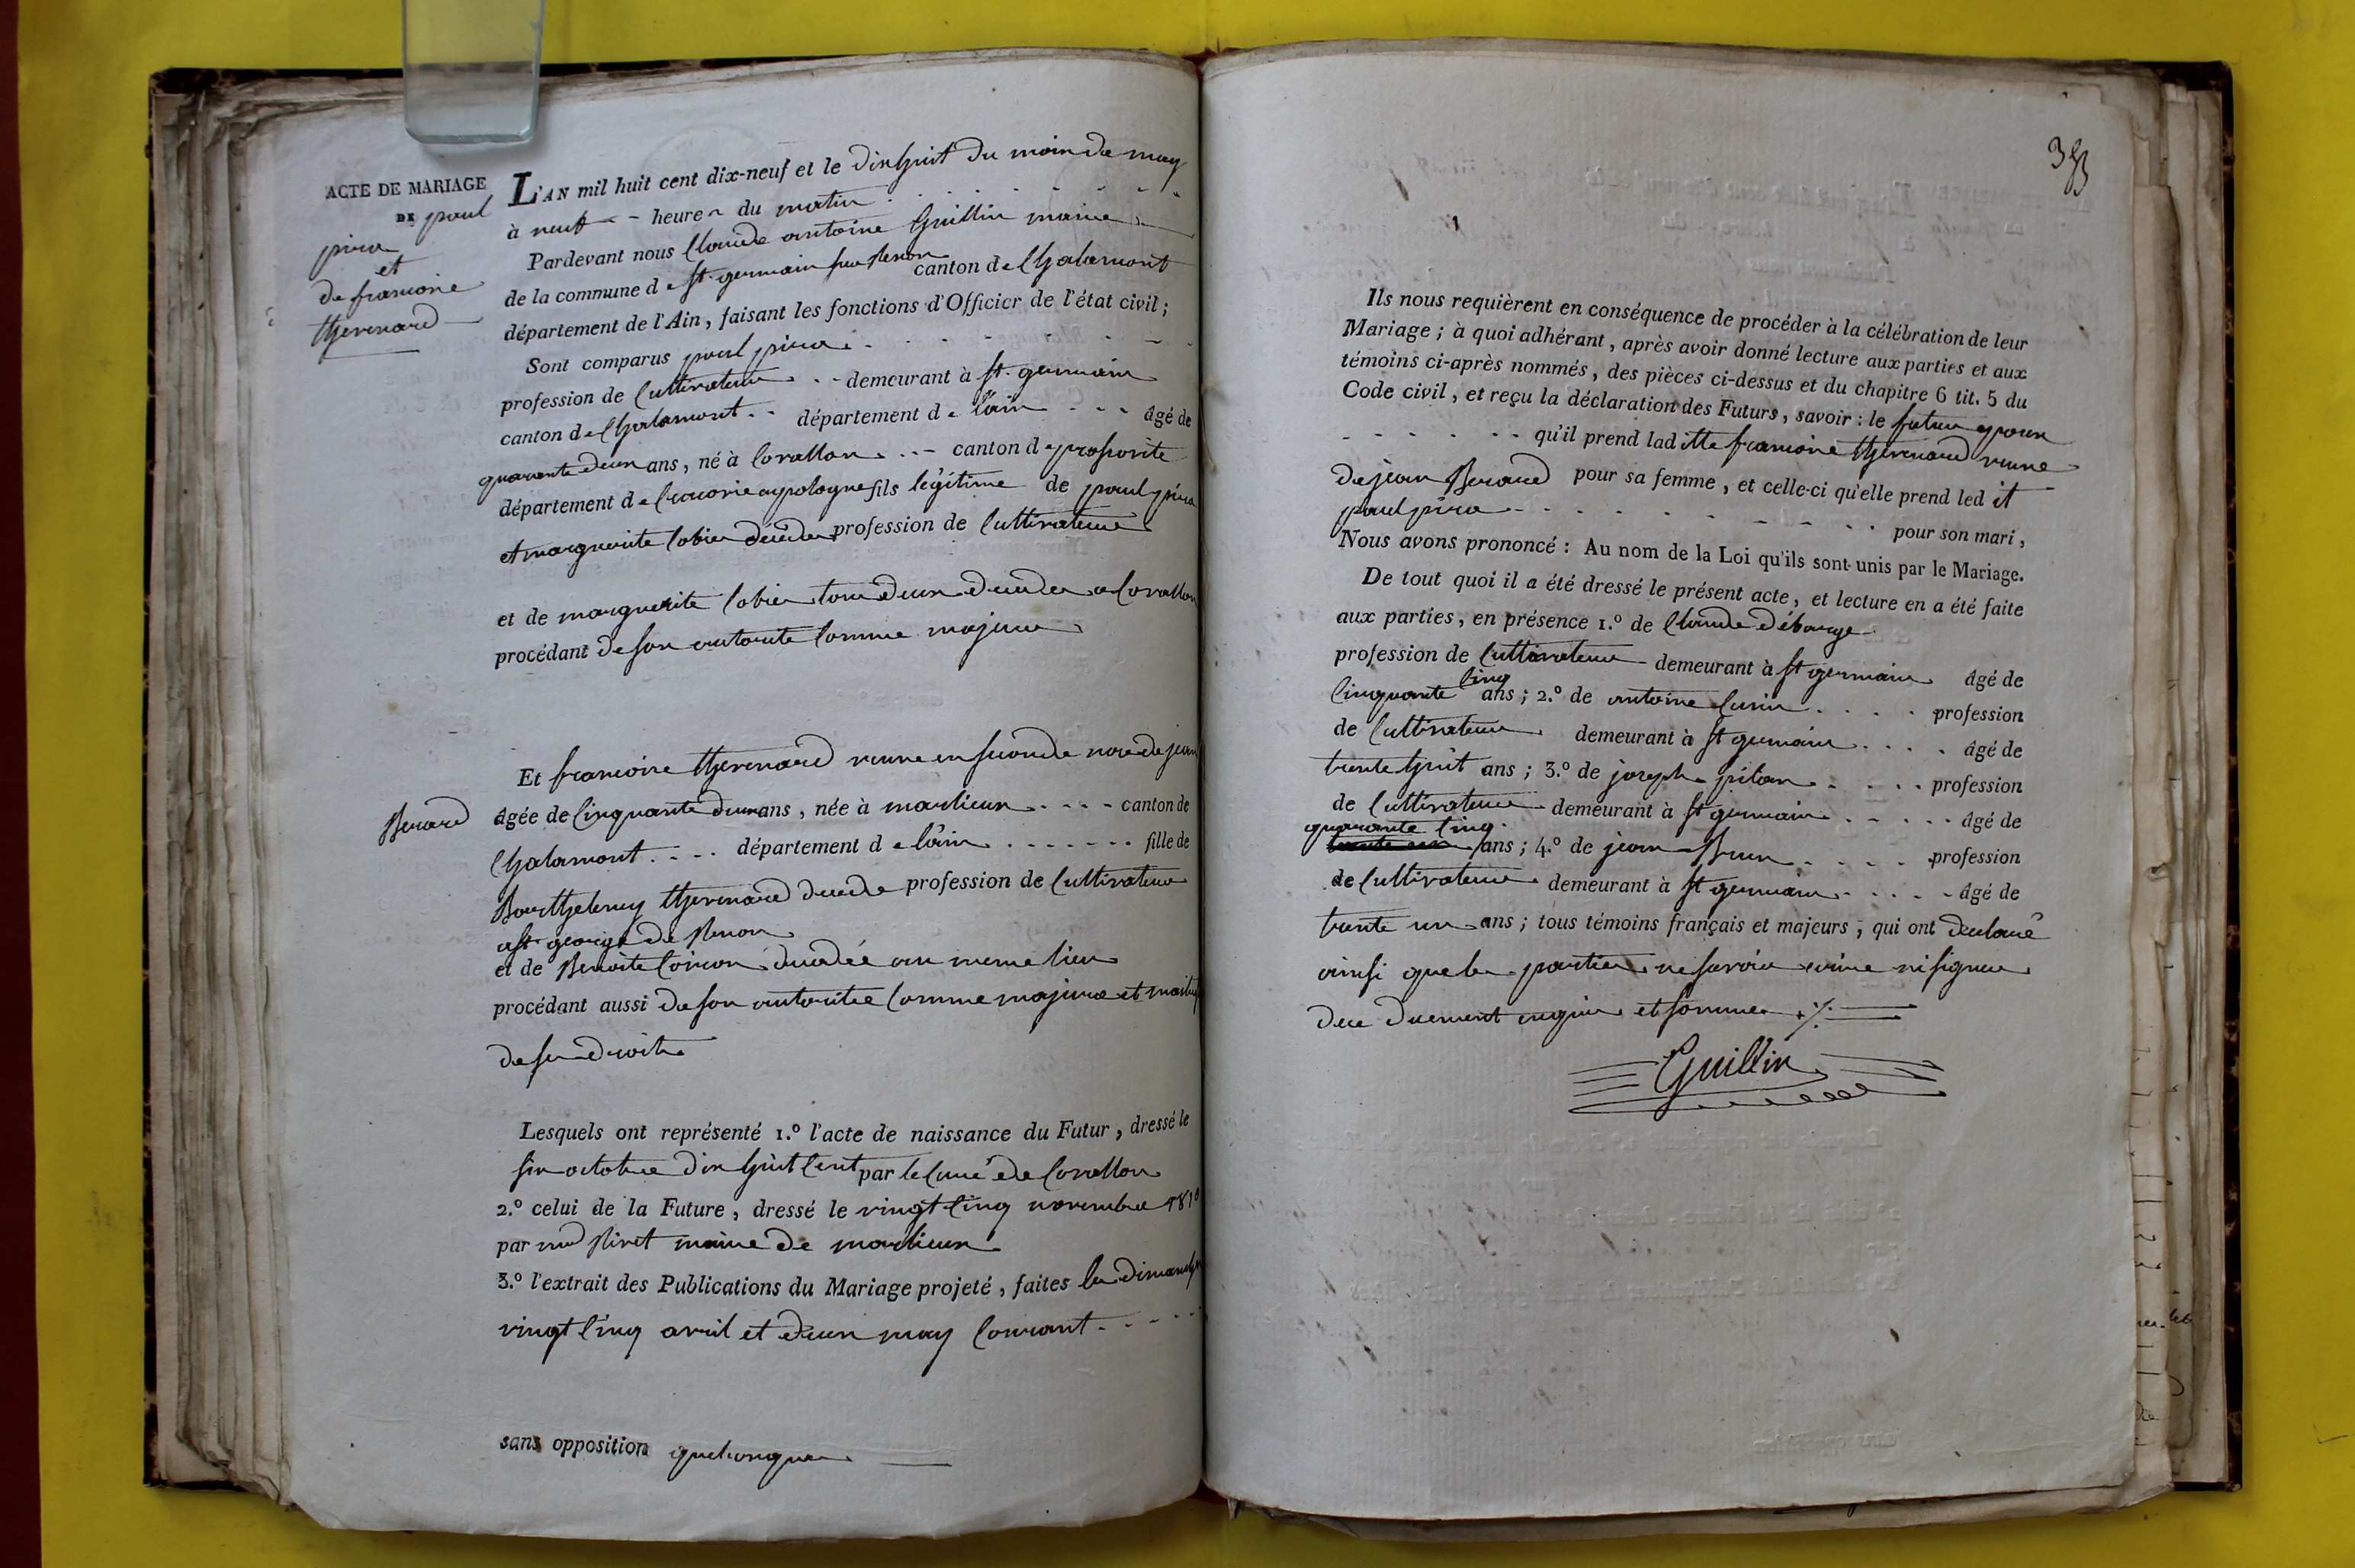 ACTE DE MARIAGE
DE paul
et
de francoise
thevenard
L'AN mil huit cent dix-neuf et le dix huit du mois de may
à neuf heures du matin
Pardevant nous Claude antoine Guillin maire
de la commune de St. germain sur Renon canton de Chalamont
département de l'Ain, faisant les fonctions d'Officier de l'état civil;
Sont comparus paul
profession de Cultivateur demeurant à St. germain
canton de Chalamont département de l'ain âgé de
quarante deux ans, né à Corallon canton de
département de fils légitime de paul
et marguerite décédés profession de Cultivateur
et de marguerite tous deux décédés a Corallon
procédant de son autorité Comme majeur
Et francoise thevenard veuve en seconde noce de jean
Berard âgée de Cinquante deux ans, née à marlieux canton de
Chalamont département de l'ain fille de
Barthelemy thevenard décédé profession de Cultivateur
a St george de Renon
et de Benoite décédée au meme lieu
procédant aussi de son autorité Comme majeure et
de ses droits
Lesquels ont représenté 1.º l'acte de naissance du Futur, dressé le
six octobre dix huit Cent par le Curé de Corallon
2.º celui de la Future, dressé le vingt Cinq novembre
par maire de marlieux
3.º l'extrait des Publications du Mariage projeté, faites les dimanches
vingt Cinq avril et deux may Courant
sans opposition quelconque
Ils nous requièrent en conséquence de procéder à la célébration de leur
Mariage; à quoi adhérant, après avoir donné lecture aux parties et aux
témoins ci-après nommés, des pièces ci-dessus et du chapitre 6 tit. 5 du
Code civil, et reçu la déclaration des Futurs, savoir: le futur epoux
qu'il prend laditte francoise thevenard veuve
de jean Berard pour sa femme, et celle-ci qu'elle prend ledit
paul pour son mari,
Nous avons prononcé: Au nom de la Loi qu'ils sont unis par le Mariage.
De tout quoi il a été dressé le présent acte, et lecture en a été faite
aux parties, en présence 1.º de Claude débourge
profession de Cultivateur demeurant à St germain âgé de
Cinquante Cinq ans; 2.º de antoine profession
de Cultivateur demeurant à St germain âgé de
trente huit ans; 3.º de joseph profession
de Cultivateur demeurant à St germain âgé de
quarante Cinq ans; 4.º de jean Brun profession
de Cultivateur demeurant à St germain âgé de
trente un ans; tous témoins français et majeurs, qui ont déclaré
ainsi que les parties ne savoir ecrire ni signer
de ce duement requis et sommes
Guillin